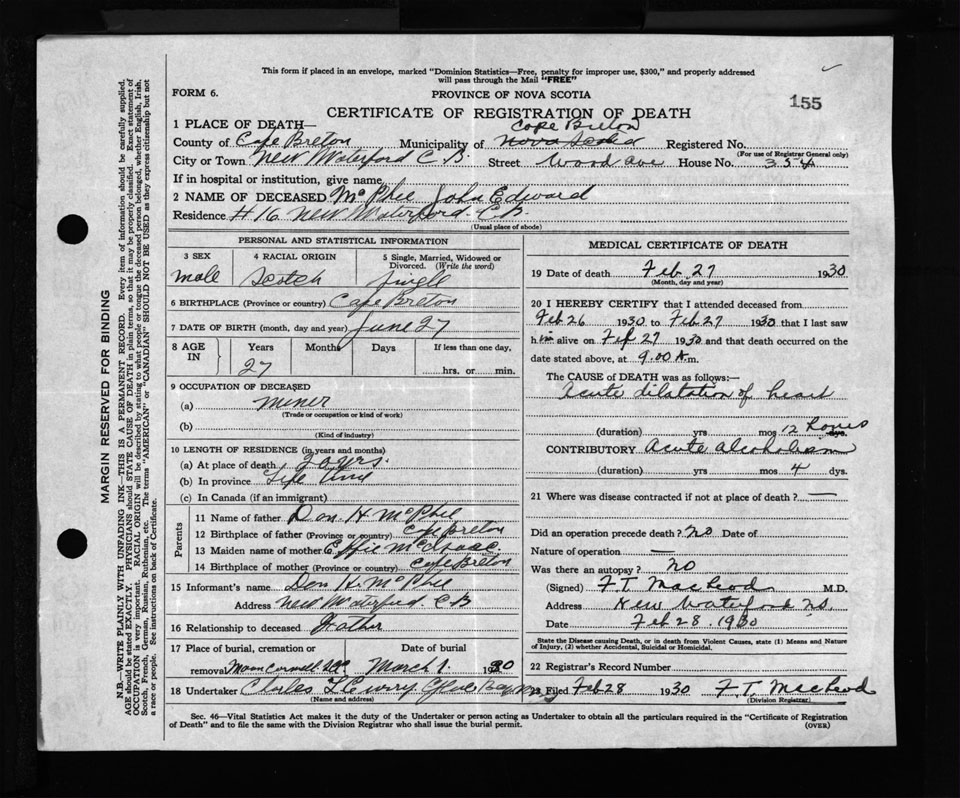 This form if placed in an envelope, marked "Dominion Statistics—Free, penalty for improper use, $300," and properly addressed
will pass through the Mail "FREE"
FORM 6.
PROVINCE OF NOVA SCOTIA
155
CERTIFICATE OF REGISTRATION OF DEATH
1 PLACE OF DEATH—
Cape Breton
County of Cape Breton Municipality of Nova Scotia Registered No.
(For use of Registrar General only)
City or Town New Waterford C.B. Street Wood Ave House No. 354
If in hospital or institution, give name
2 NAME OF DECEASED McPhee John Edward
Residence #16 New Waterford C.B.
(Usual place of abode)
PERSONAL AND STATISTICAL INFORMATION
3 SEX 4 RACIAL ORIGIN 5 Single, Married, Widowed or Divorced. (Write the word)
male Scotch
6 BIRTHPLACE (Province or country) Cape Breton
7 DATE OF BIRTH (month, day and year) June 27
8 AGE IN Years Months Days If less than one day,
27 hrs. or min.
9 OCCUPATION OF DECEASED
(a) miner
(Trade or occupation or kind of work)
(b)
(Kind of industry)
10 LENGTH OF RESIDENCE (in years and months)
(a) At place of death yrs.
(b) In province Life time
(c) In Canada (if an immigrant)
Parents
11 Name of father Dan H McPhee
12 Birthplace of father (Province or country) Cape Breton
13 Maiden name of mother Effie McIsaac
14 Birthplace of mother (Province or country) Cape Breton
15 Informant's name Dan H. McPhee
Address New Waterford. C B
16 Relationship to deceased Father
17 Place of burial, cremation or removal Date of burial
March 1. 1930
18 Undertaker Charles Glace Bay
(Name and address)
MEDICAL CERTIFICATE OF DEATH
19 Date of death Feb. 27 1930
(Month, day and year)
20 I HEREBY CERTIFY that I attended deceased from
Feb 26 1930 to Feb 27 1930 that I last saw
him alive on Feb 27 1930 and that death occurred on the
date stated above, at 9.00 A m.
The CAUSE of DEATH was as follows:—
Acute dilatation of heart
(duration) yrs mos 12 hours dys.
CONTRIBUTORY Acute alcoholism
(duration) yrs mos. 4 dys.
21 Where was disease contracted if not at place of death? —
Did an operation precede death? no Date of
Nature of operation —
Was there an autopsy? no
(Signed) F. T. MacLeod M.D.
Address New Waterford NS
Date Feb 28. 1930
State the Disease causing Death, or in death from Violent Causes, state (1) Means and Nature
of Injury, (2) whether Accidental, Suicidal or Homicidal.
22 Registrar's Record Number
23 Filed Feb 28 1930 F. T. MacLeod
(Division Registrar)
Sec. 46—Vital Statistics Act makes it the duty of the Undertaker or person acting as Undertaker to obtain all the particulars required in the "Certificate of Registration
of Death" and to file the same with the Division Registrar who shall issue the burial permit.
(OVER)
MARGIN RESERVED FOR BINDING
N.B.—WRITE PLAINLY WITH UNFADING INK—THIS IS A PERMANENT RECORD. Every item of information should be carefully supplied.
AGE should be stated EXACTLY. PHYSICIANS should STATE CAUSE OF DEATH in plain terms, so that it may be properly classified. Exact statement of
OCCUPATION is very important. RACIAL ORIGIN will be described by stating to what people or tongue the deceased person belonged, whether English, Irish,
Scotch, French, German, Russian, Ruthenian, etc. The terms "AMERICAN" or "CANADIAN" SHOULD NOT BE USED as they express citizenship but not
a race or people. See instructions on back of Certificate.